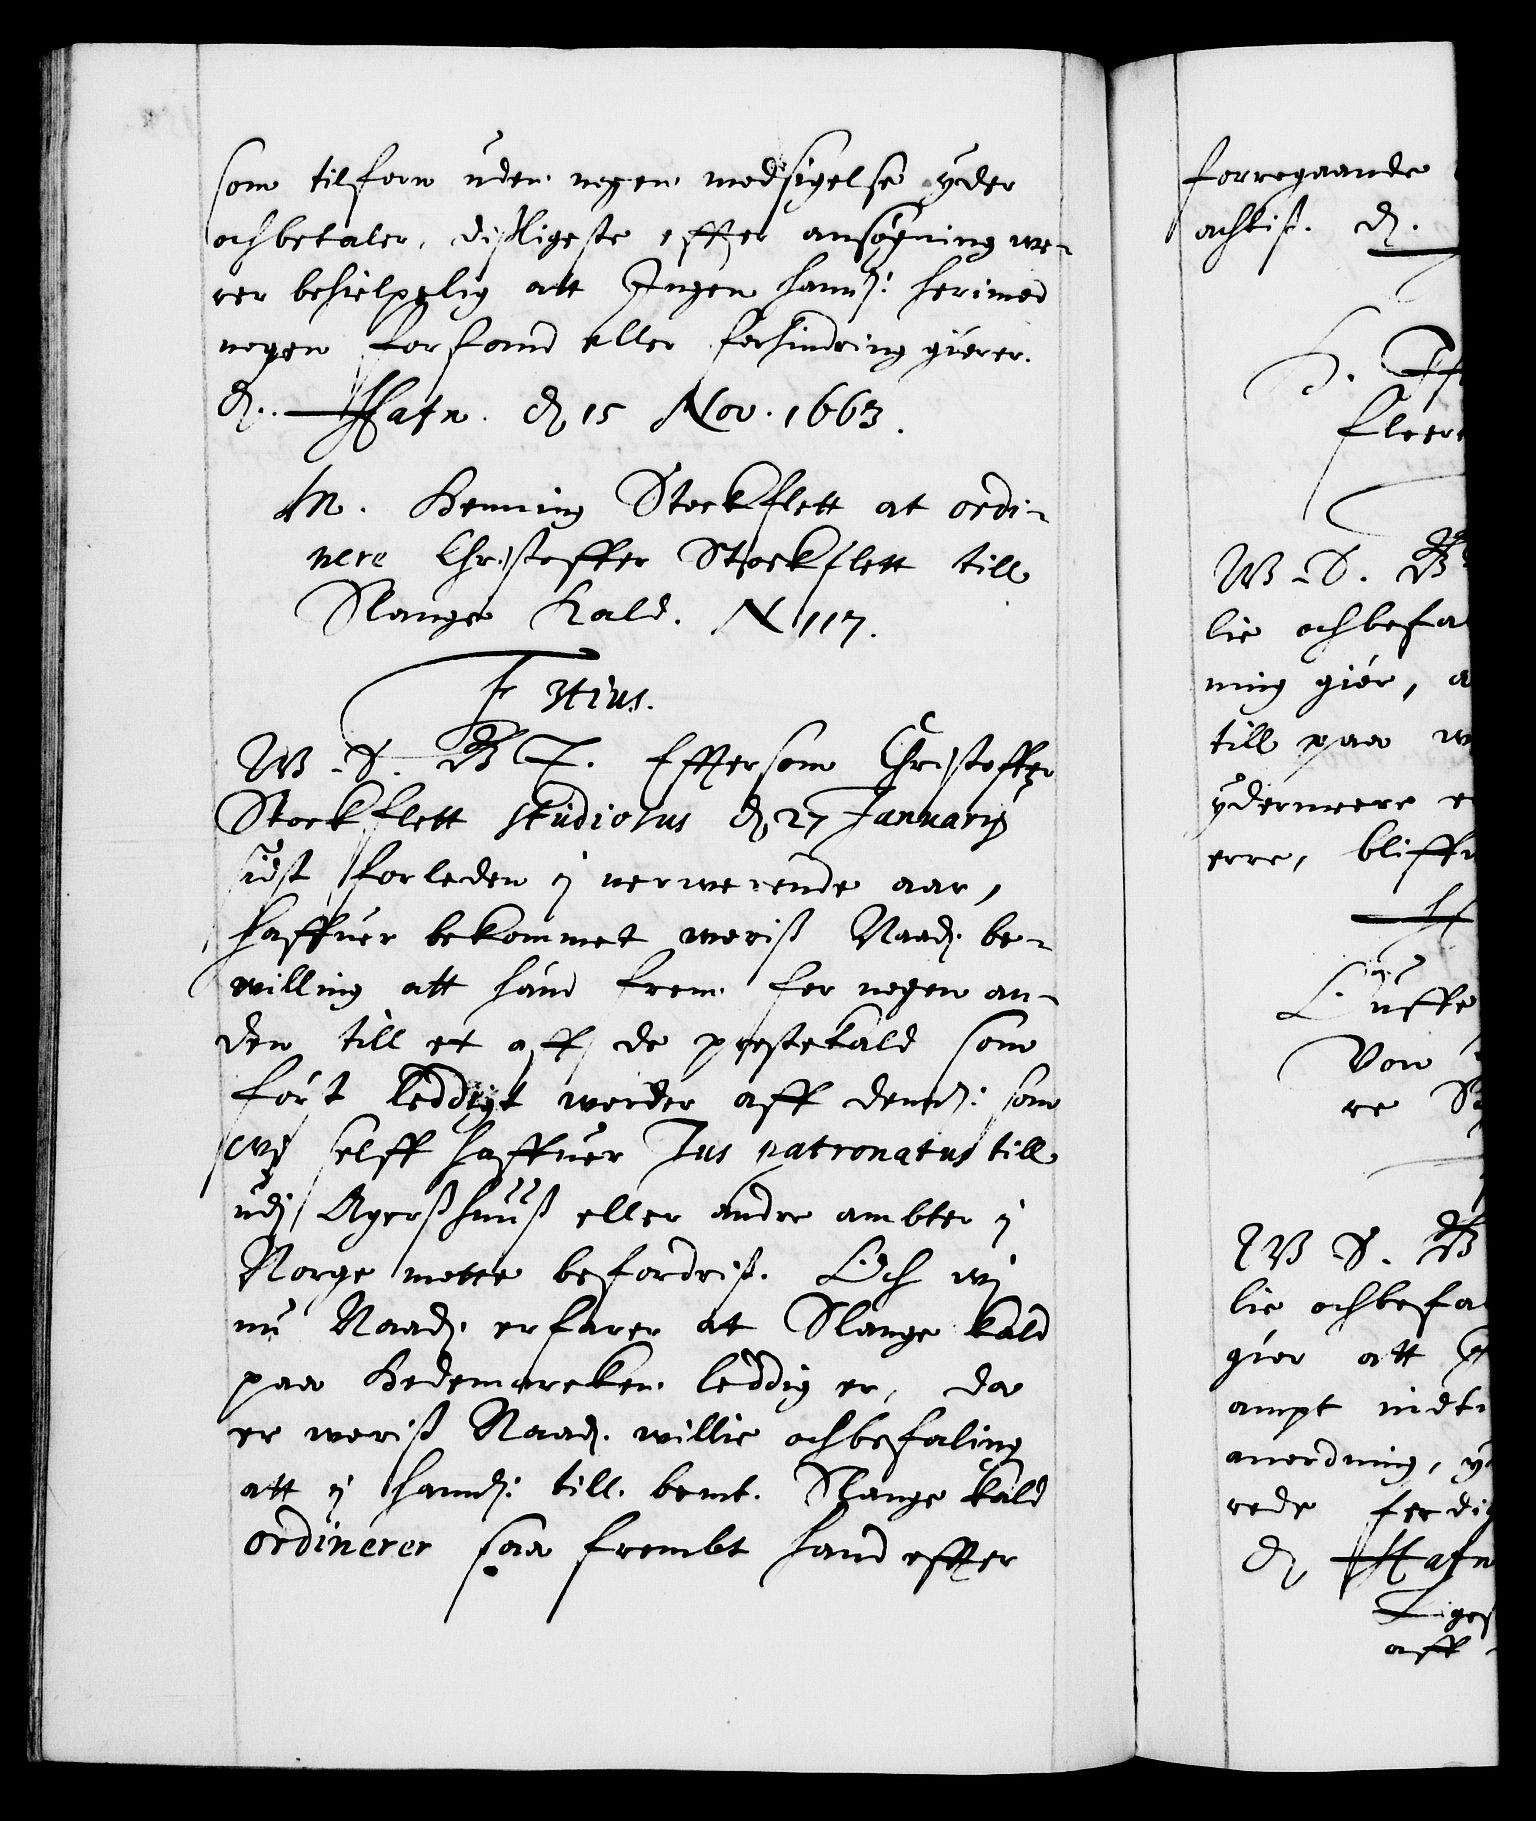 som tilforn uden nogen modsigelse yder
och betaler, dißligeste effter ansøgning we-
rer behielpelig att Ingen hannd: herimod
nogen forfang eller forhindring giører.
d. Hafn. d 15 Nov. 1663.
M. Henning Stockflett at ordi-
nere Christoffer Stockflett till
Stange Kald. N 117.
F 3tius.
W. S. G T. Effter som Christoffer
Stockflett studiosus d 27 Januarij
sidst forleden i nerwerende aar,
haffuer bekommet woriß Naad. be-
willing att hand frem for nogen an-
den till et aff de prestekald som
først leddigt worder aff dennd: som
wij selff haffuer Jus patronatus till
udj Agerßhuuß eller andre ambter i
Norge motte befordriß. Och wj
nu Naad. erfarer at Stange kald
paa Hedemarcken leddig er, da
er woriß Naad. willie och befaling
att i hannd: till bemt. Stange kald
ordinerer saa frembt hand effter
forregaaende
achtiß. d.
W. S. G
lie och befa
ning giør, a
till paa w
ydermeere e
erre, bliffu
Von
re
W S. G
lie och befa
giør att
ampt indt
anordning, y
rede ferdig
d Hafn
Liges
aff